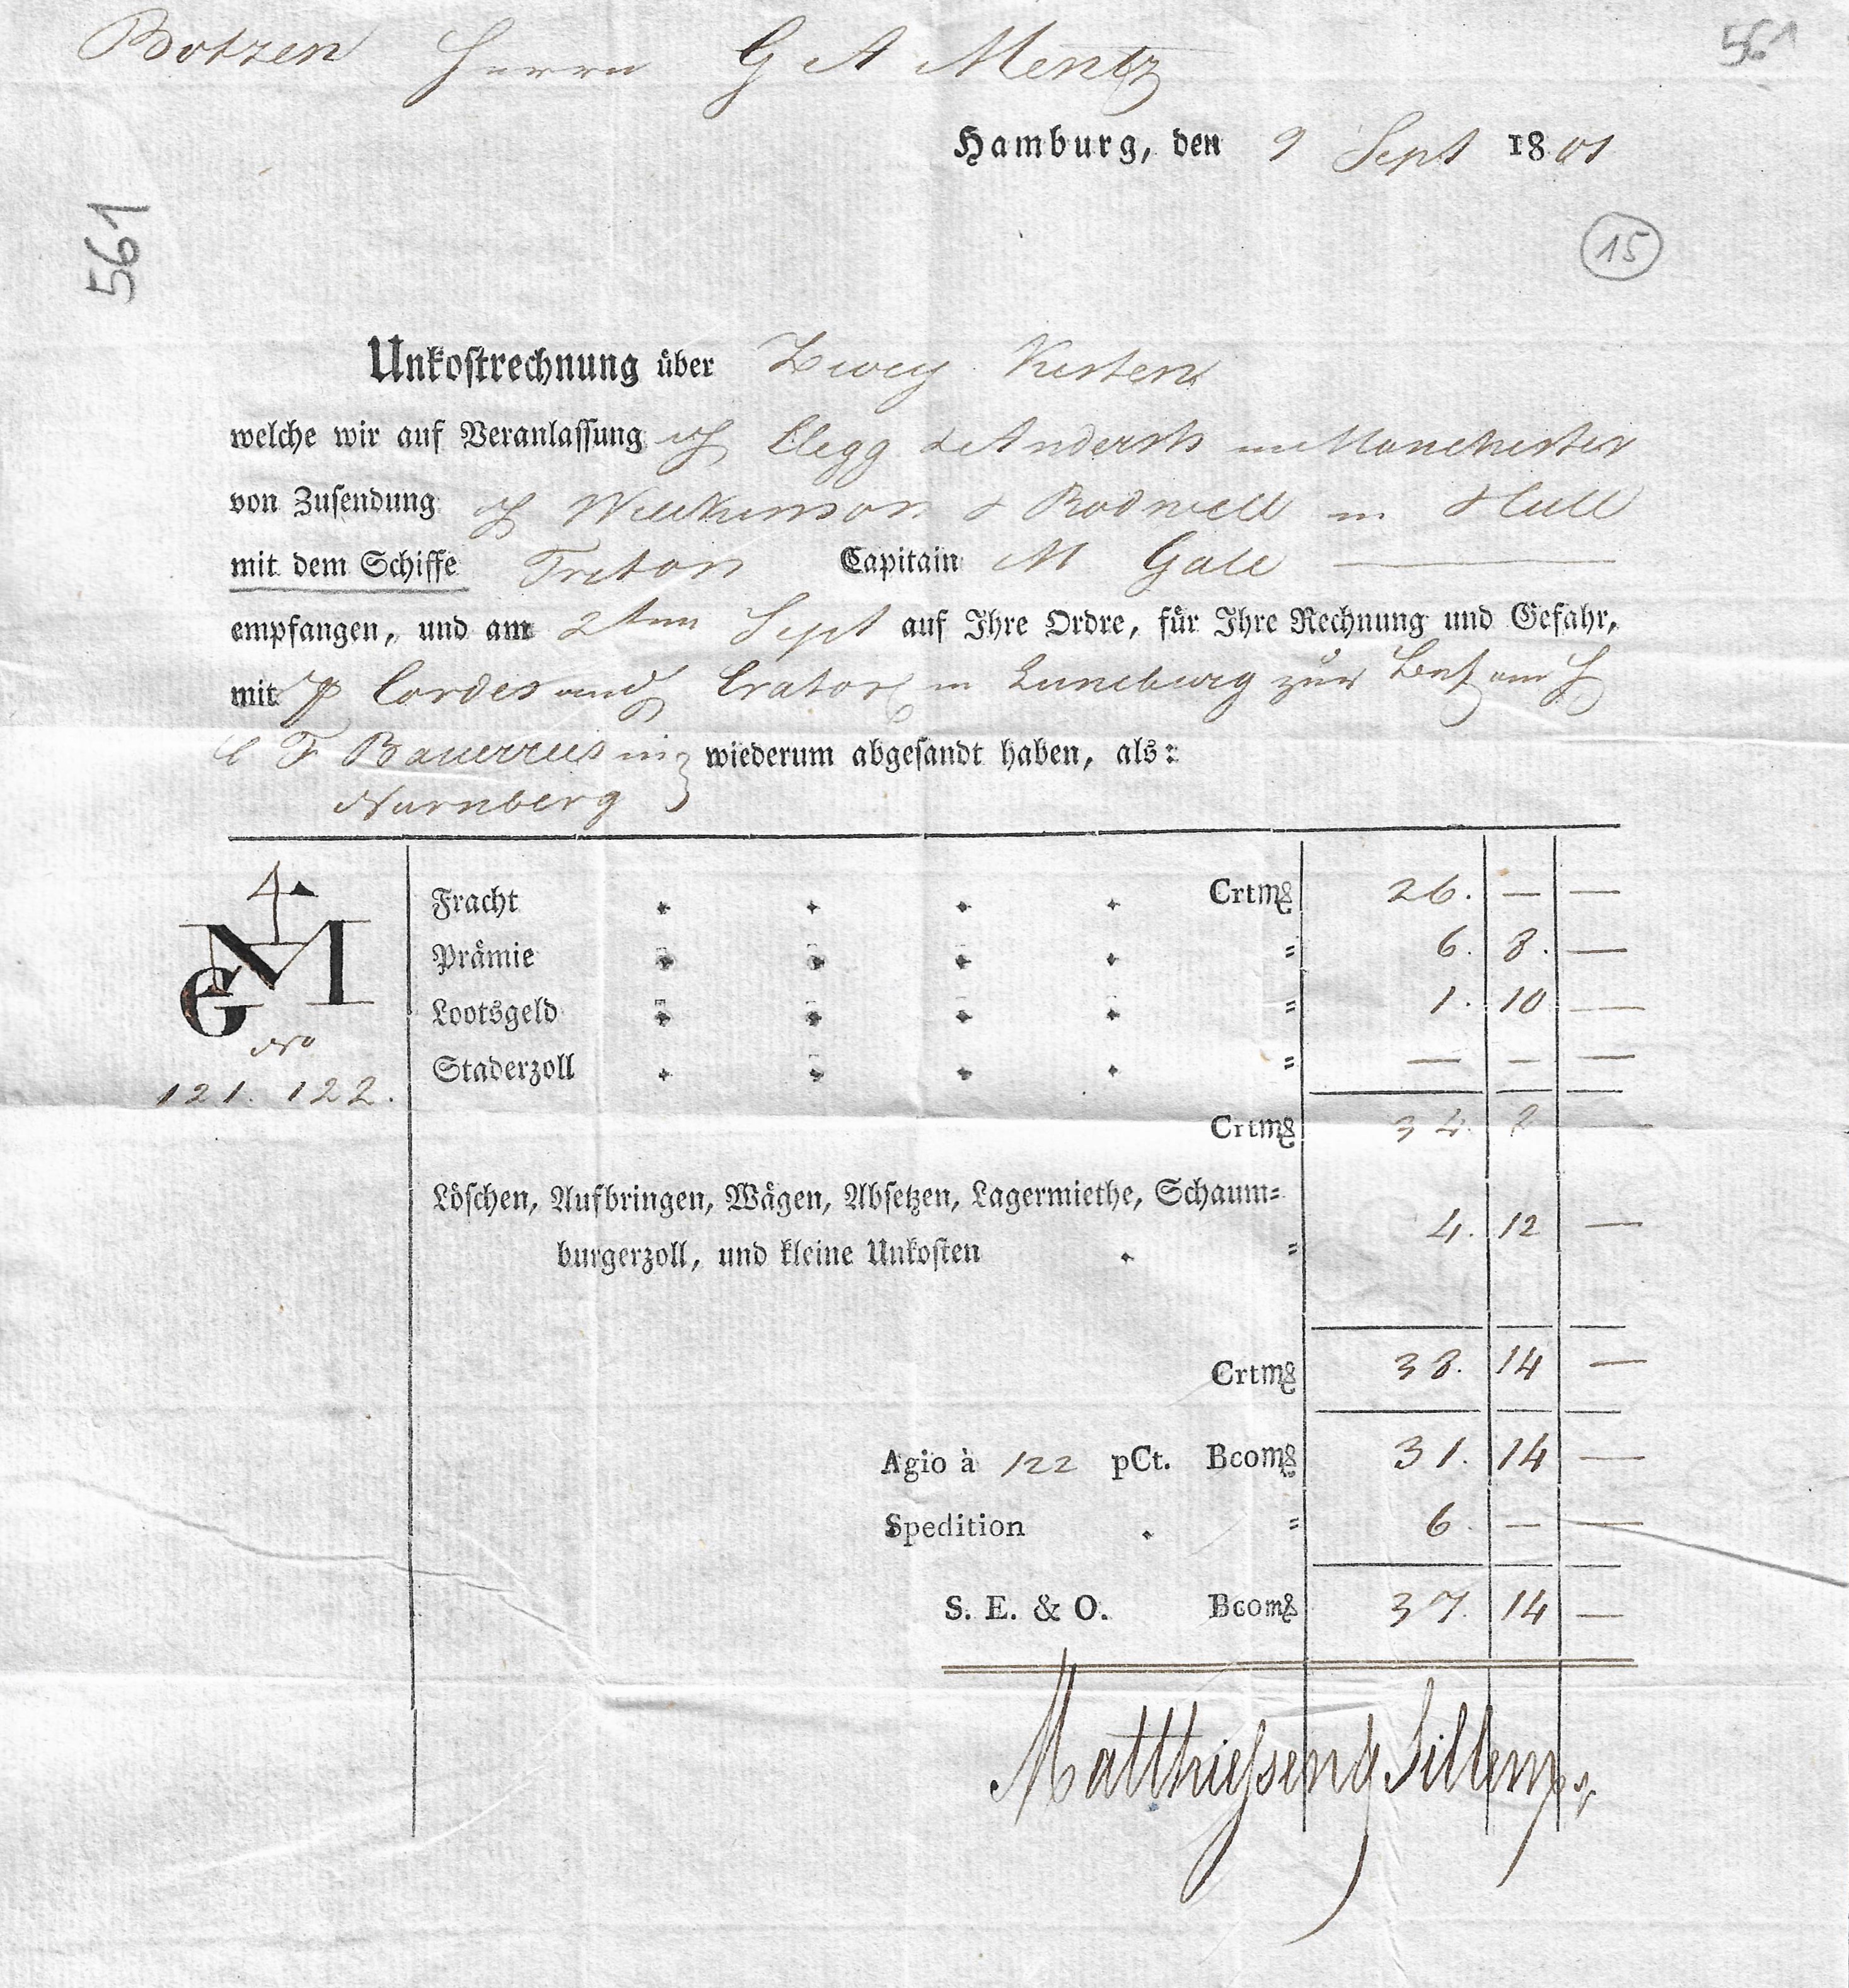 Botzen Herrn G A Mentz
561
Hamburg, den 9 Sept 1801
561
15
Unkoſtrechnung über Zwey Kisten
welche wir auf Veranlaſſung Clegg & Anderſs in Manchester
von Zuſendung Wilkinson & Rodwell in Hull
mit dem Schiffe Triton Capitain M Gale
empfangen, und am 2ten Sept auf Ihre Ordre, für Ihre Rechnung und Gefahr,
mit Cordes und in Luneburg zur
C F Bauerreis in wiederum abgeſandt haben, als:
Nurnberg
4
GM
No
121. 122.
Fracht Crtm₰ 26. — —
Prämie " 6. 8. —
Lootsgeld " 1. 10 —
Staderzoll " — — —
Crtm₰ 34. 2 —
Löſchen, Aufbringen, Wägen, Abſetzen, Lagermiethe, Schaum-
burgerzoll, und kleine Unkoſten " 4. 12 —
Crtm₰ 38. 14 —
Agio à 122 pCt. Bcom₰ 31. 14 —
Spedition " 6. — —
S. E. & O. Bcom₰ 37. 14 —
Matthieſsen & Sillem